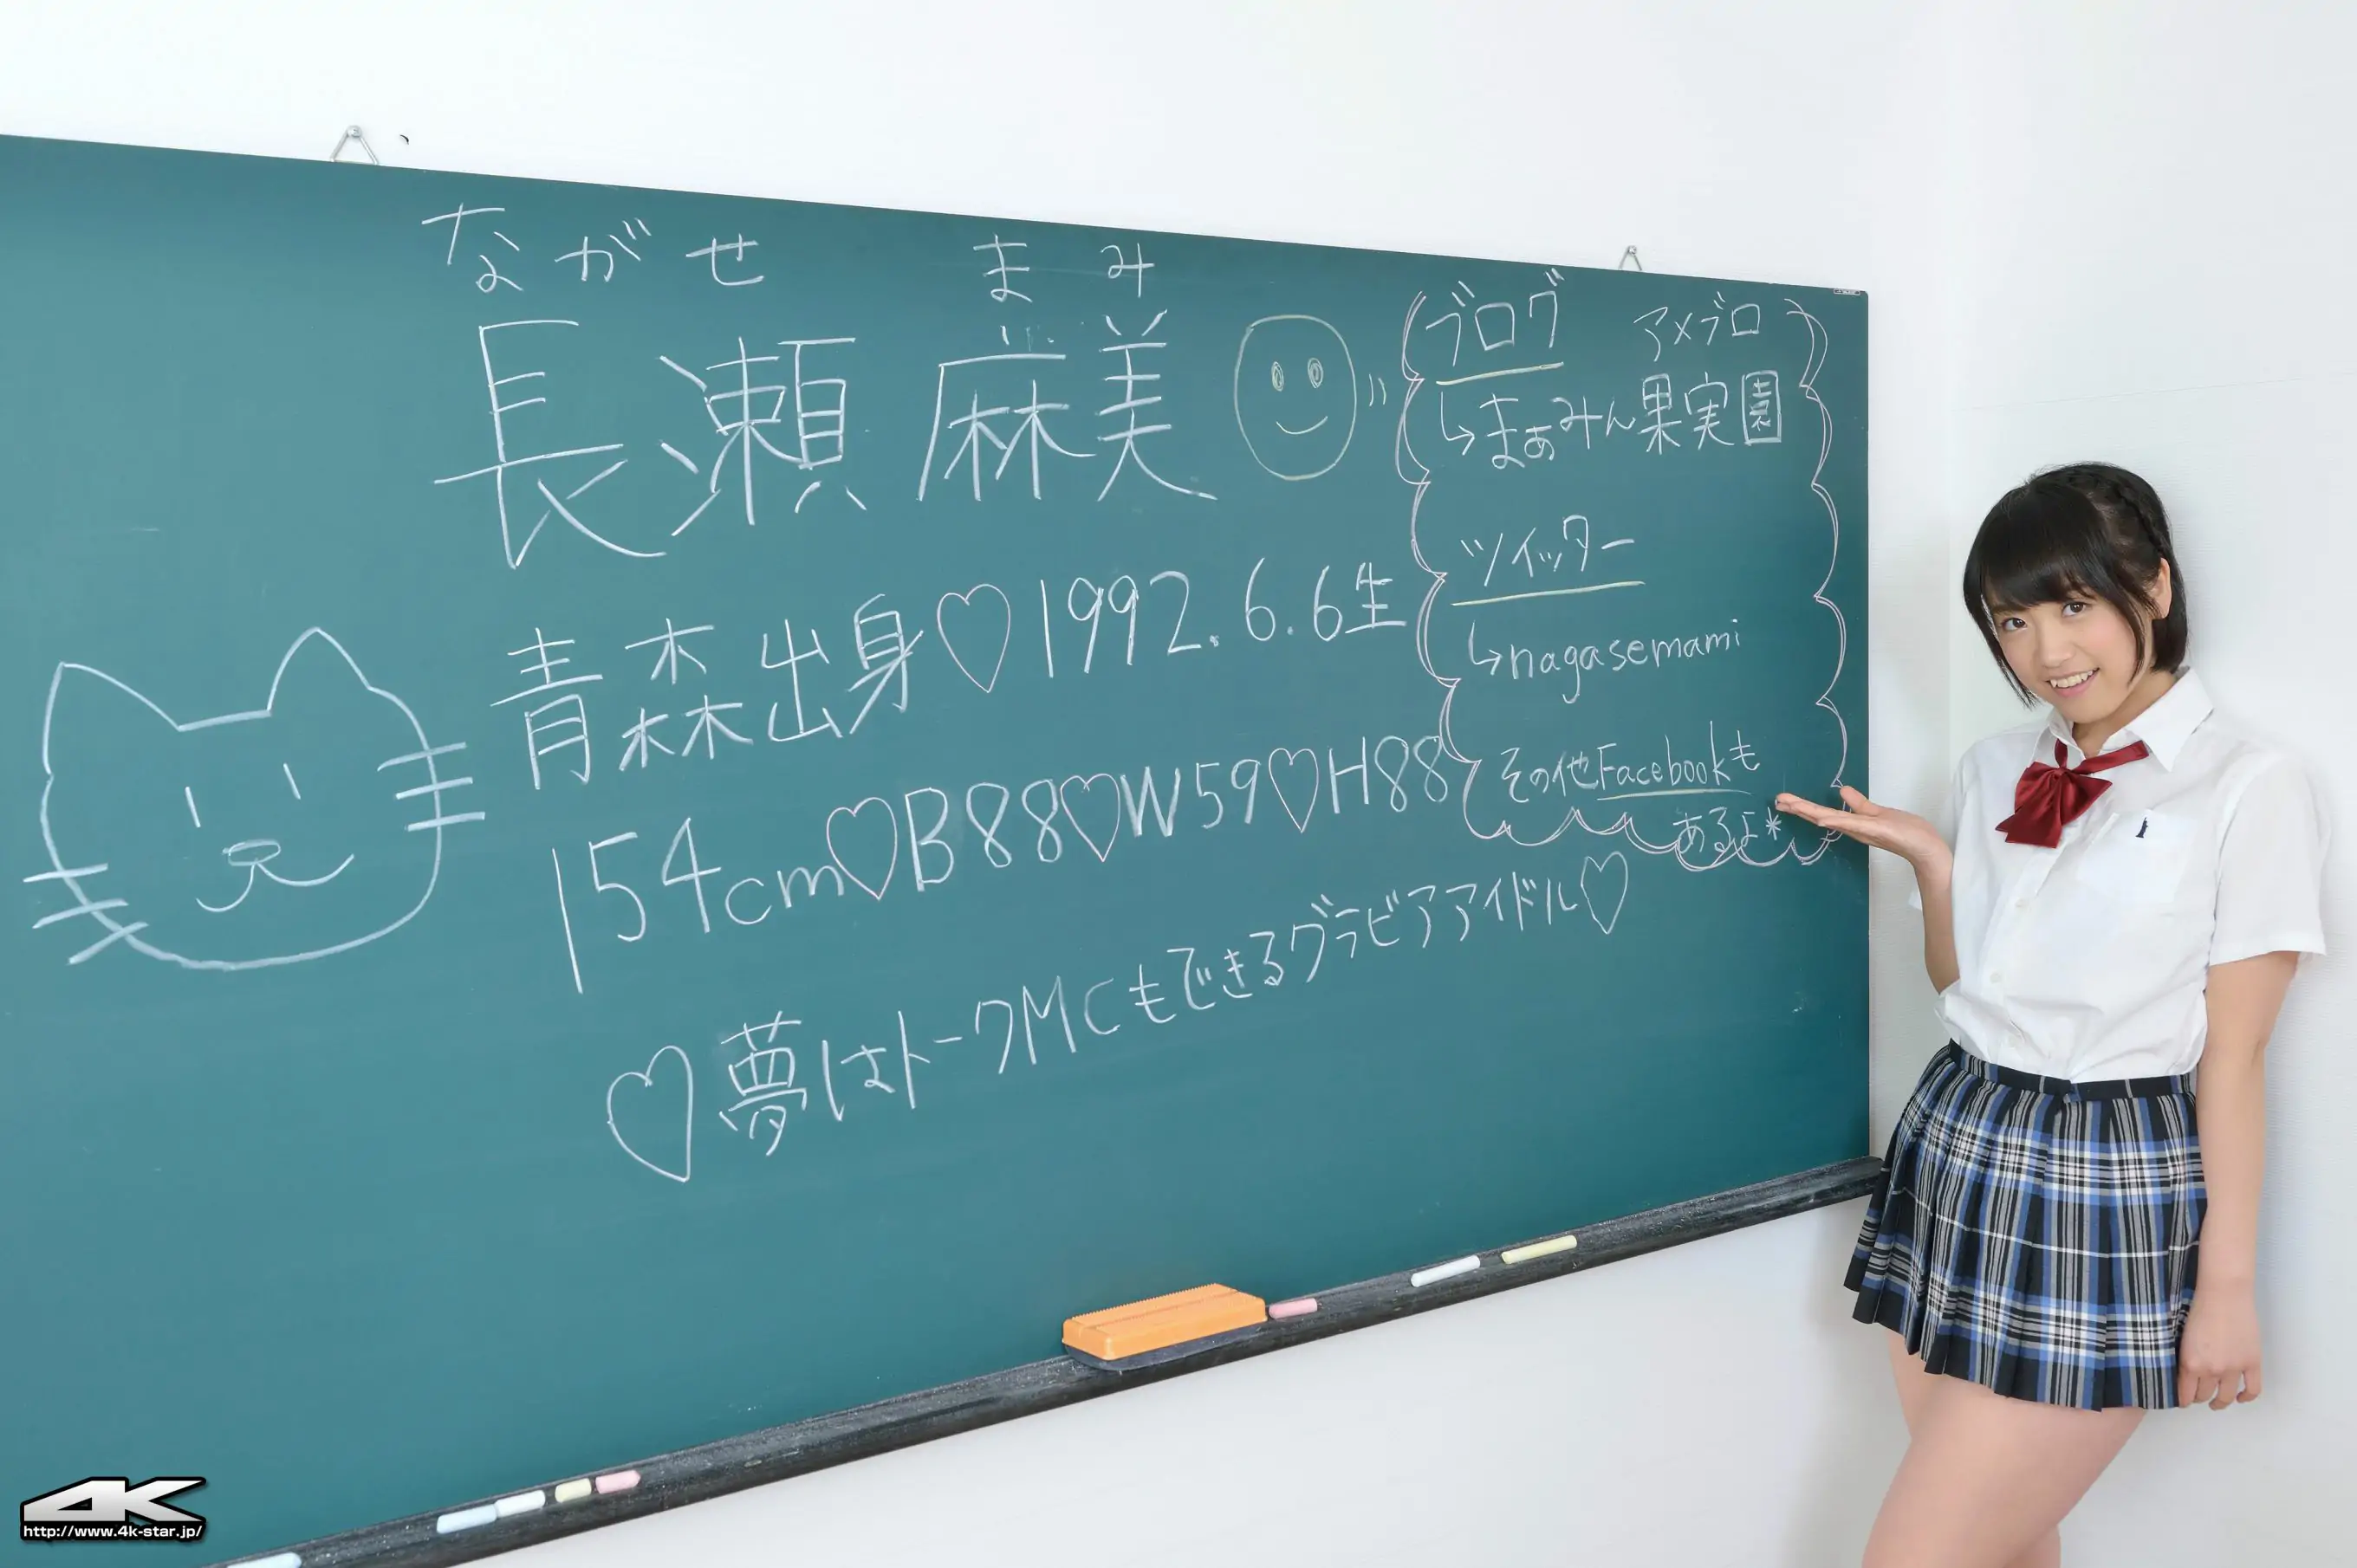 ながせ まみ
長瀬 麻美
青森出身♡1992.6.6生
154cm♡B88♡W59♡H88
♡夢はトークMCもできるグラビアアイドル♡
ブログ アメブロ
↳まぁみん果実園
ツイッター
↳nagasemami
その他Facebookも
あるよ*
4K
http://www.4k-star.jp/